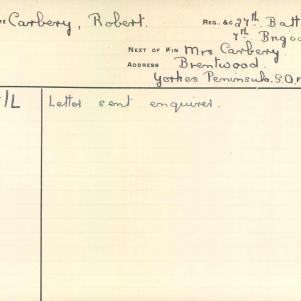 Carbery, Robert. Reg., &c 27th Batt
7th Brgad
Next of Kin Mrs Carbery.
Address Brentwood.
Yorkes Peninsula. S.O.
/L Letter sent enquirer.